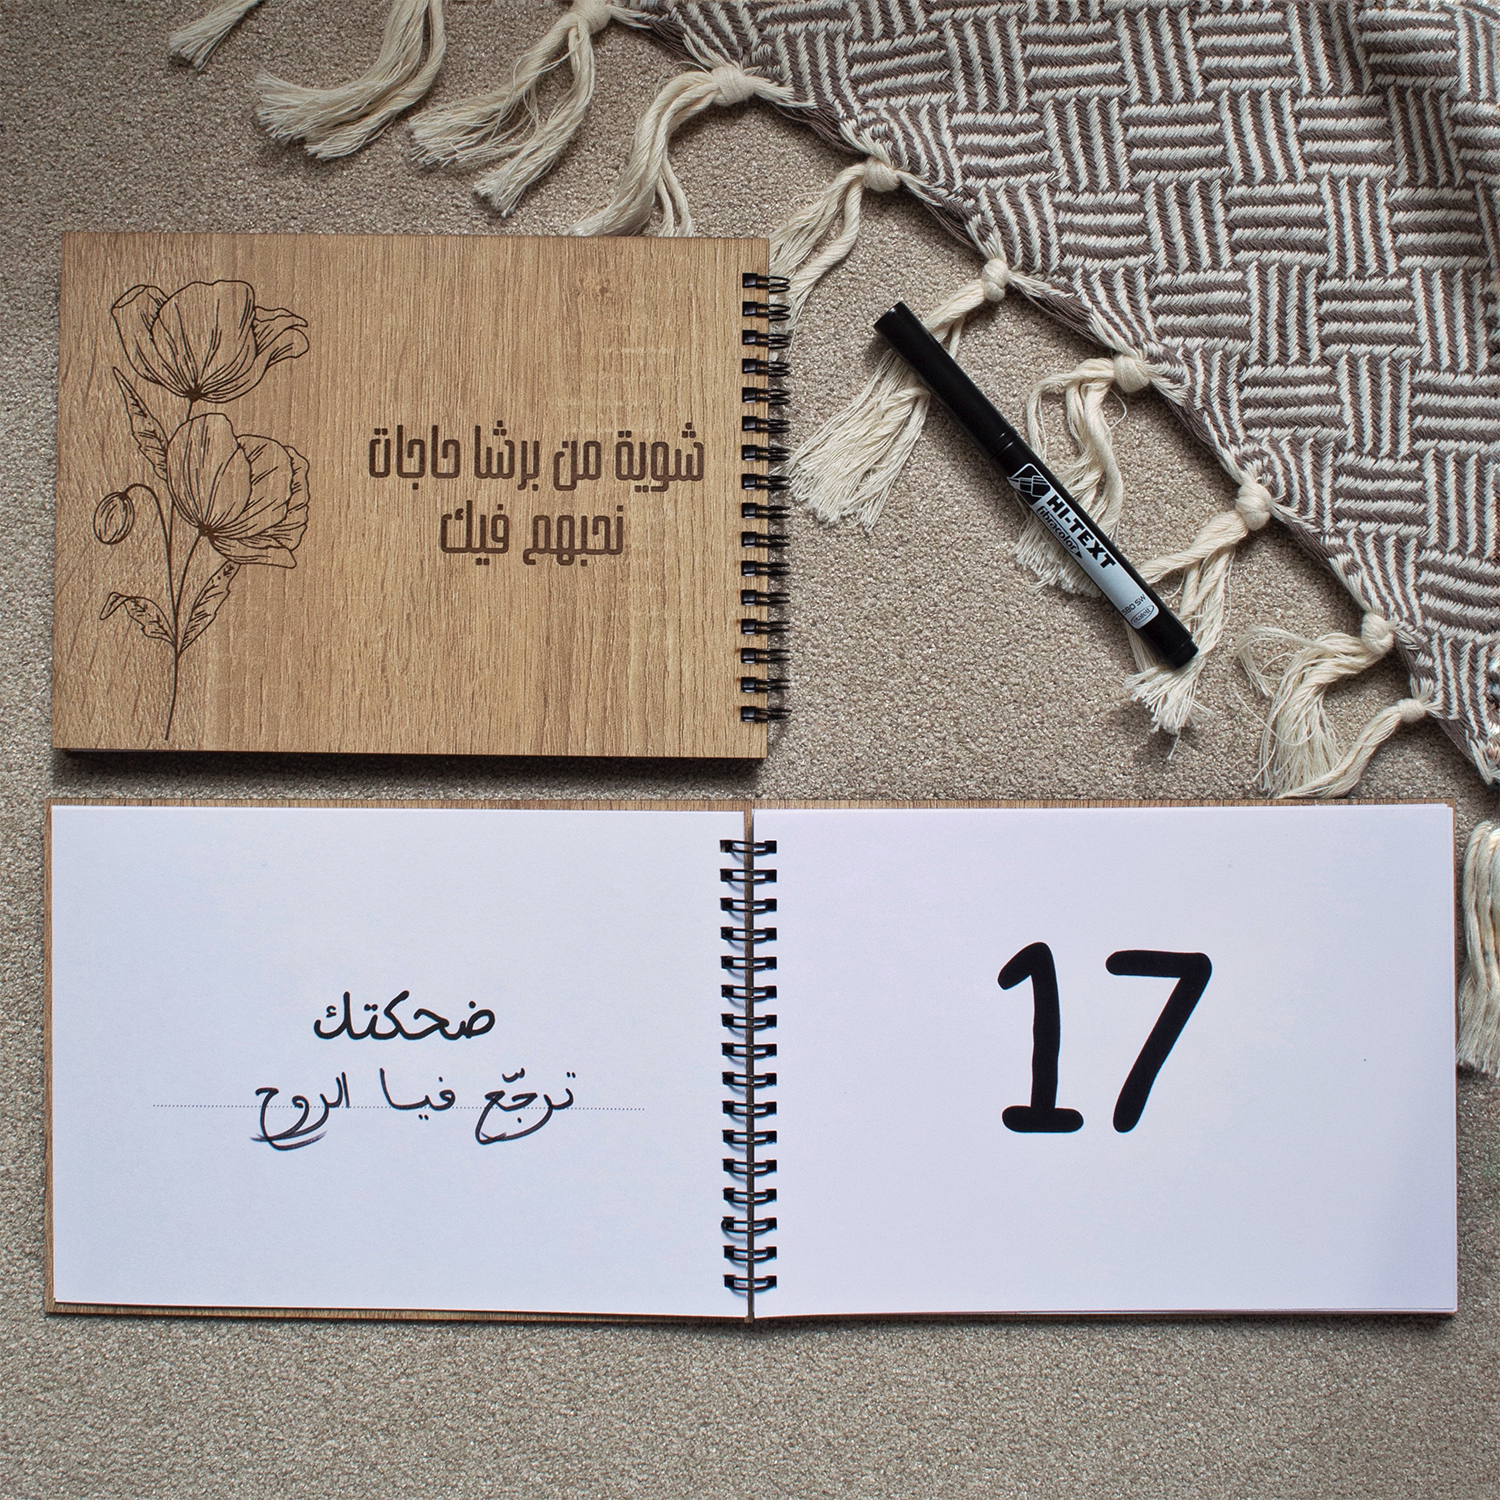 شوية من برشا حاجات
نحبهم فيك
HI-TEXT
fibracolor
880 SW
ضحكتك
ترجّع فيا الروح
17